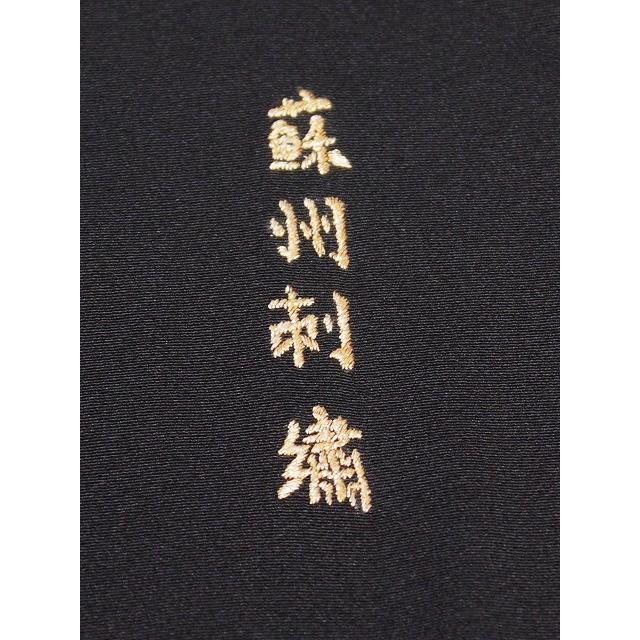 蘇州刺繍